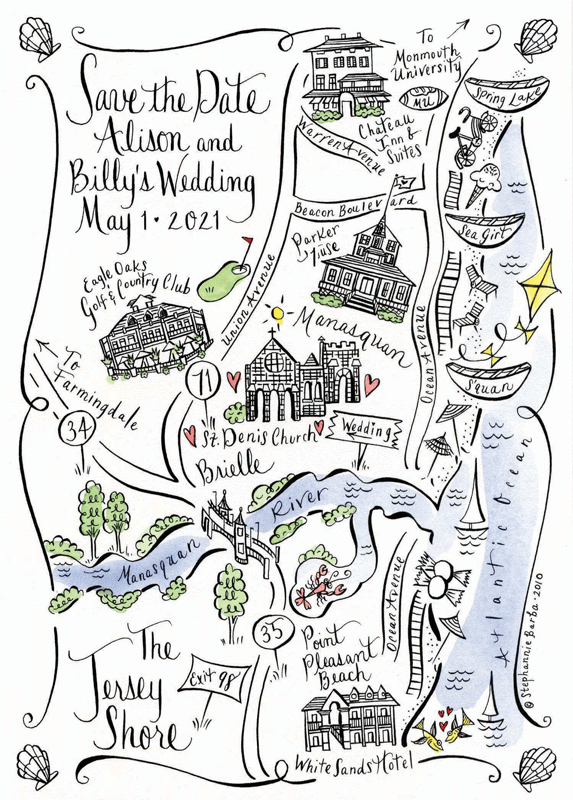 Save the Date
Alison and
Billy's Wedding
May 1 • 2021
To
Monmouth
University
MU
Spring Lake
Chateau
Inn &
Suites
Warren Avenue
Beacon Boulevard
Sea Girt
Parker
House
Eagle Oaks
Golf & Country Club
Union Avenue
Manasquan
Ocean Avenue
Squan
To
Farmingdale
71
34
St. Denis Church
Wedding
Brielle
Manasquan
River
Atlantic Ocean
Ocean Avenue
35
Exit 98
The
Jersey
Shore
Point
Pleasant
Beach
White Sands Hotel
© Stephannie Barba • 2010